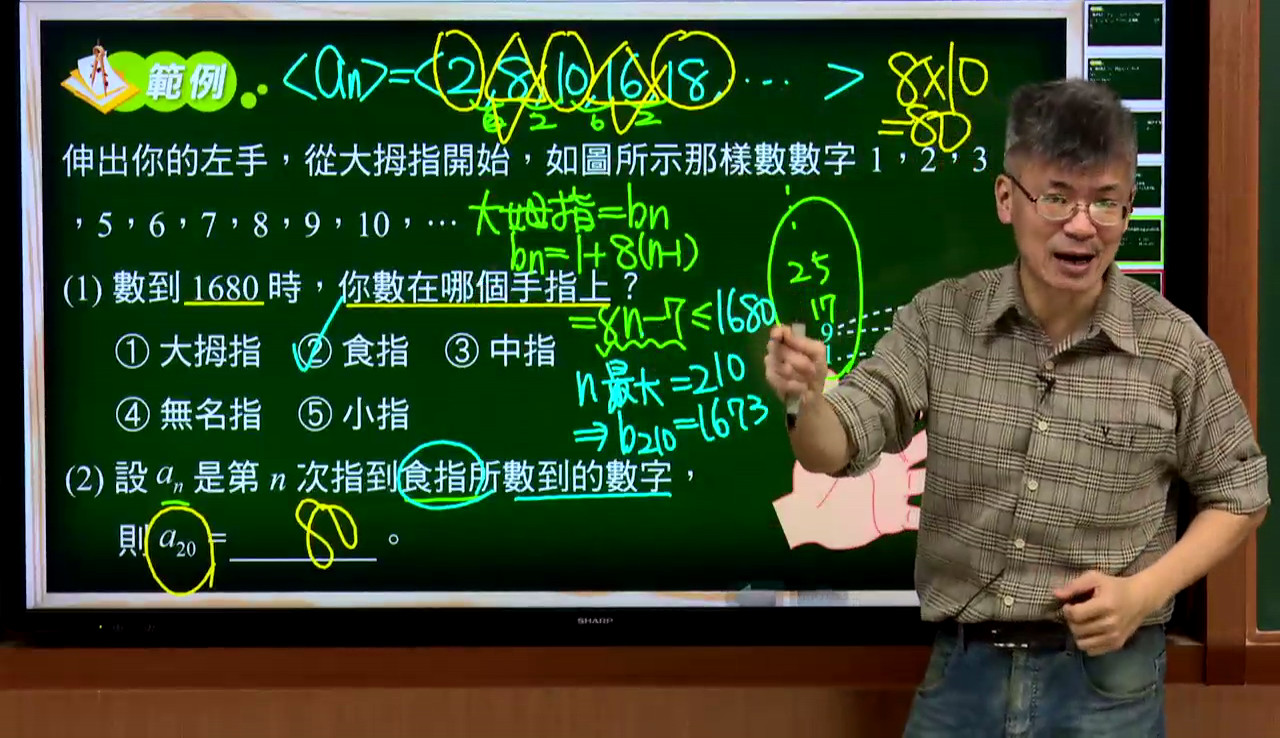 範例
<an>=<2,8,10,16,18,...>
6 2 6 2
8×10
=80
伸出你的左手，從大拇指開始，如圖所示那樣數數字 1，2，3
，5，6，7，8，9，10，⋯
大姆指=bn
bn=1+8(n-1)
(1) 數到 1680 時，你數在哪個手指上？
=8n-7≤1680
25
17
9
1
① 大拇指 ② 食指 ③ 中指
n最大=210
④ 無名指 ⑤ 小指
⇒b210=1673
(2) 設 an 是第 n 次指到食指所數到的數字，
則 a20 = 80 。
SHARP